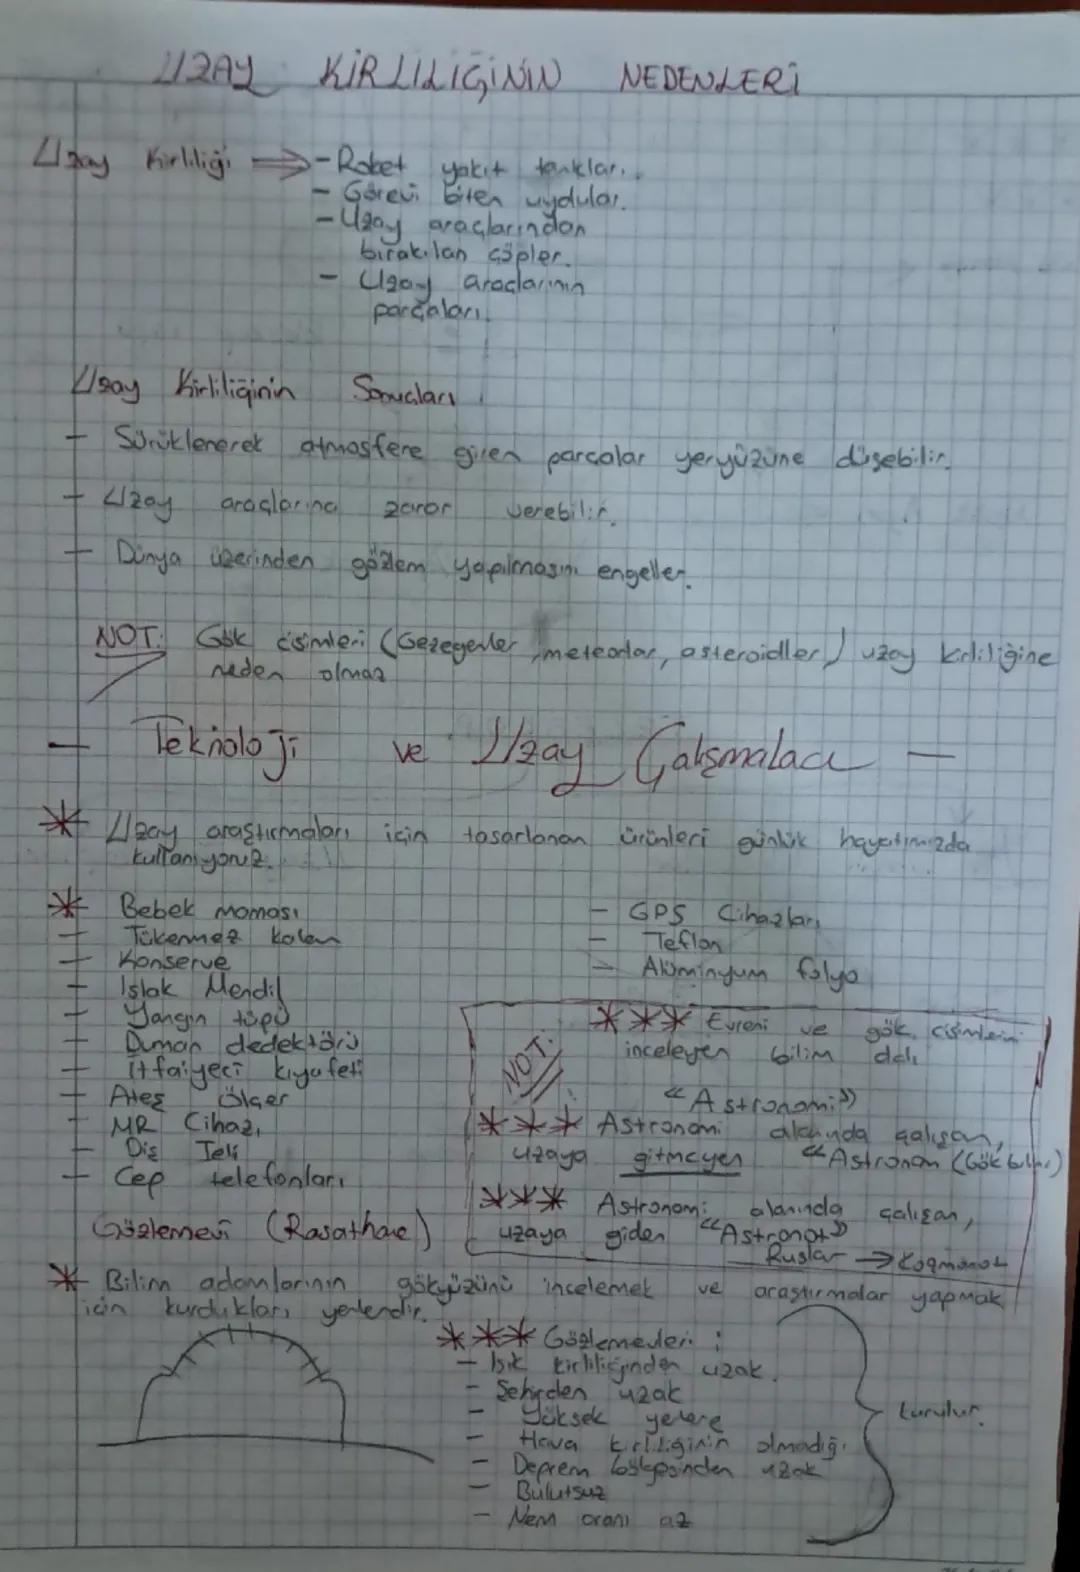 UZAY KİRLİLİĞİNİN NEDENLERİ
Uzay Kirliliği ⇒ - Roket yakıt tankları.
- Görevi biten uydular.
- Uzay araçlarından
bırakılan çöpler.
- Uzay araclarının
parçaları.
Uzay Kirliliğinin Sonuçları
- Sürüklenerek atmosfere giren parçalar yeryüzüne düşebilir.
- Uzay araçlarına zarar verebilir.
- Dünya üzerinden gözlem yapılmasını engeller.
NOT: Gök cisimleri (Gezegenler, meteorlar, asteroidller) uzay kirliliğine
neden olmaz
- Teknoloji ve Uzay Çalışmaları -
* Uzay araştırmaları için tasarlanan ürünleri günlük hayatımızda
kullanıyoruz.
* Bebek maması
- Tükenmez kalem
- Konserve
- Islak Mendil
- Yangın tüpü
- Duman dedektörü
- İtfaiyeci kıyafeti
- Ateş ölçer
- MR Cihazı
- Diş Teli
- Cep telefonları
- GPS Cihazları
- Teflon
- Alüminyum folyo
NOT:
*** Evreni ve gök cisimlerini
inceleyen bilim dalı
"Astronomi"
*** Astronomi alanında çalışan,
uzaya gitmeyen "Astronom (Gök bilimci)
*** Astronomi alanında çalışan,
uzaya giden "Astronot"
Ruslar → Kozmonot
Gözlemevi (Rasathane)
* Bilim adamlarının gökyüzünü incelemek ve araştırmalar yapmak
için kurdukları yerlerdir.
*** Gözlemevleri :
- Işık kirliliğinden uzak.
- Şehirden uzak
- Yüksek yerlere
- Hava kirliliğinin olmadığı
- Deprem bölgesinden uzak
- Bulutsuz
- Nem oranı az
kurulur.